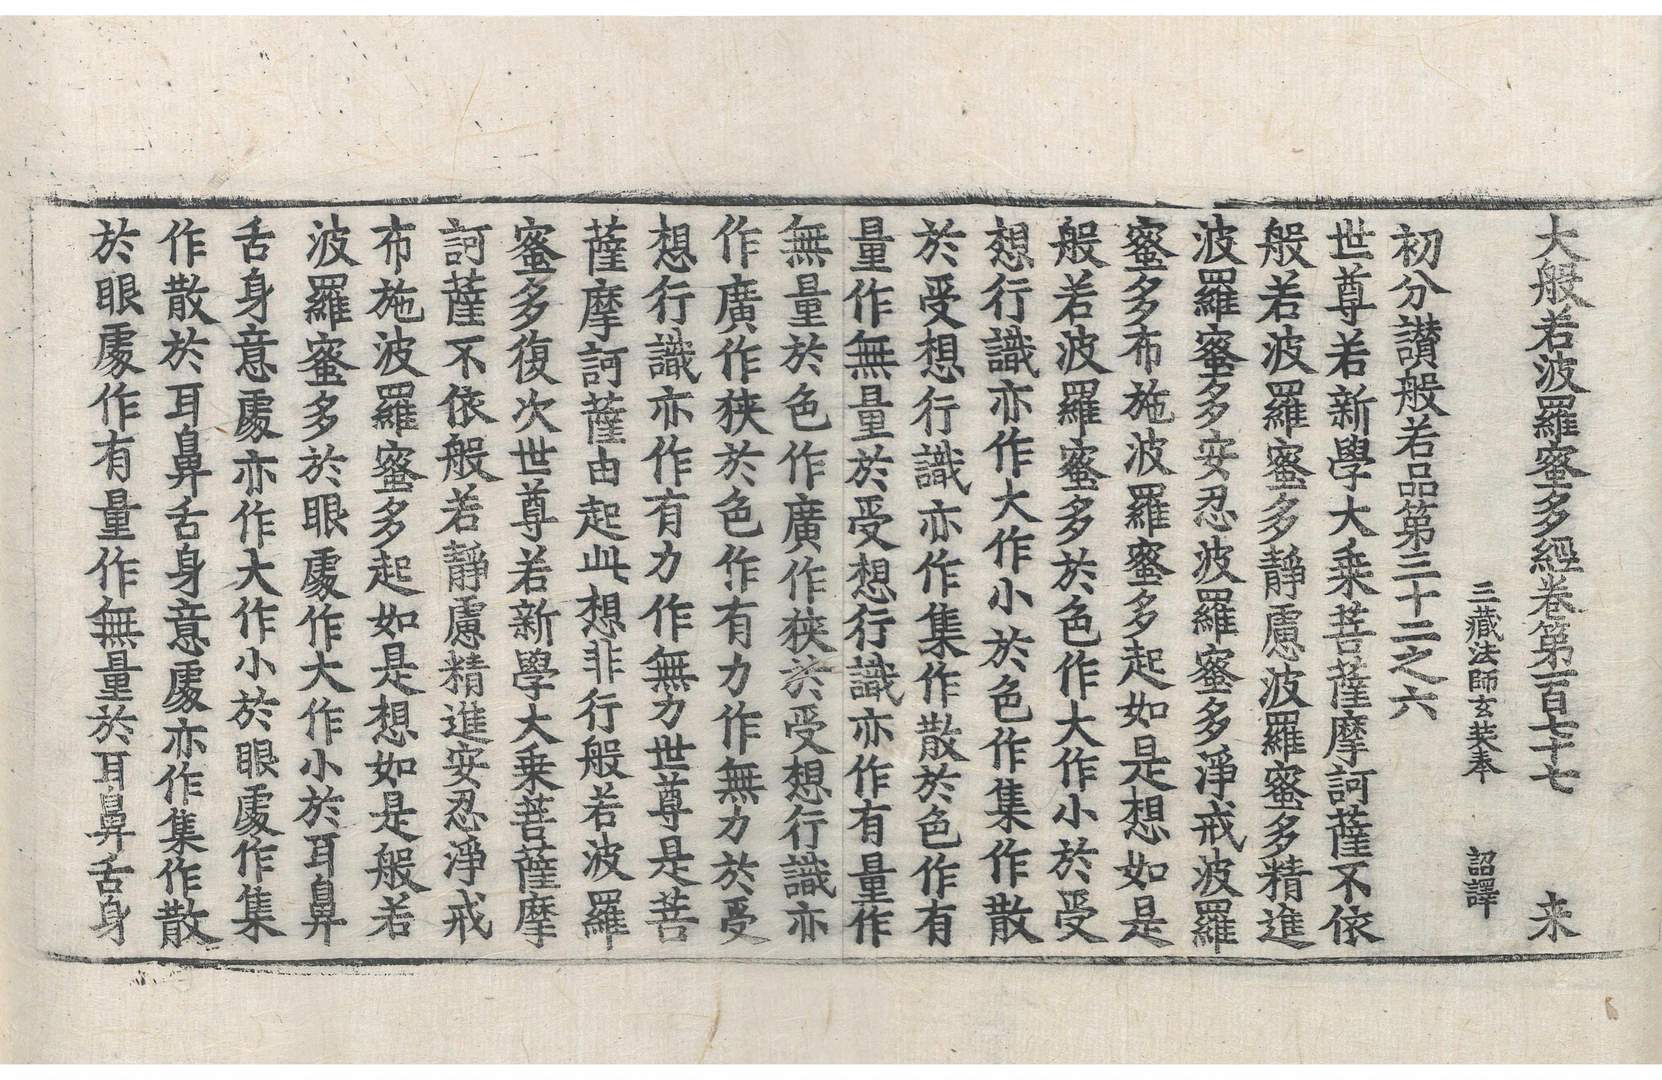 大般若波羅蜜多經卷第一百七十七　来
三藏法師玄奘奉　詔譯
初分讃般若品第三十二之六
世尊若新學大乗菩薩摩訶薩不依
般若波羅蜜多靜慮波羅蜜多精進
波羅蜜多安忍波羅蜜多淨戒波羅
蜜多布施波羅蜜多起如是想如是
般若波羅蜜多於色作大作小於受
想行識亦作大作小於色作集作散
於受想行識亦作集作散於色作有
量作無量於受想行識亦作有量作
無量於色作廣作狹於受想行識亦
作廣作狹於色作有力作無力於受
想行識亦作有力作無力世尊是菩
薩摩訶薩由起此想非行般若波羅
蜜多復次世尊若新學大乗菩薩摩
訶薩不依般若靜慮精進安忍淨戒
布施波羅蜜多起如是想如是般若
波羅蜜多於眼處作大作小於耳鼻
舌身意處亦作大作小於眼處作集
作散於耳鼻舌身意處亦作集作散
於眼處作有量作無量於耳鼻舌身